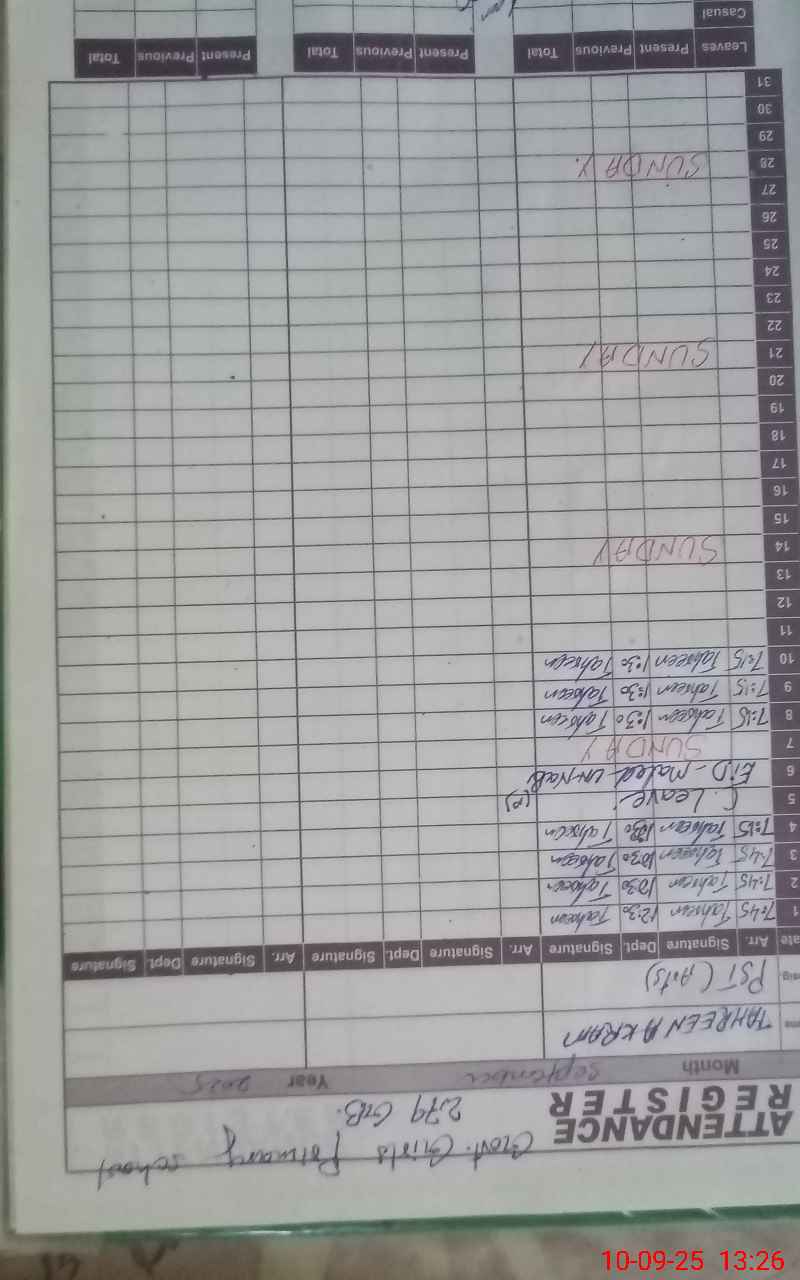 Govt. Girls Primary school
ATTENDANCE REGISTER 279 GB.
Month September Year 2025
TAHREEN AKRAM
PST (Arts)
ate Arr. Signature Dept. Signature Arr. Signature Dept. Signature Arr. Signature Dept. Signature
1 7:45 Tahreen 12:30 Tahreen
2 7:45 Tahreen Tahreen
3 7:45 Tahreen Tahreen
4 7:15 Tahreen Tahreen
5 C. Leave (P)
6 EiD-Malad-un-Nabi
7 SUNDAY
8 7:15 Tahreen 1:30 Tahreen
9 7:15 Tahreen 1:30 Tahreen
10 7:15 Tahreen 1:30 Tahreen
11
12
13
14 SUNDAY
15
16
17
18
19
20
21 SUNDAY
22
23
24
25
26
27
28 SUNDAY.
29
30
31
Leaves Present Previous Total Present Previous Total Present Previous Total
Casual
10-09-25 13:26